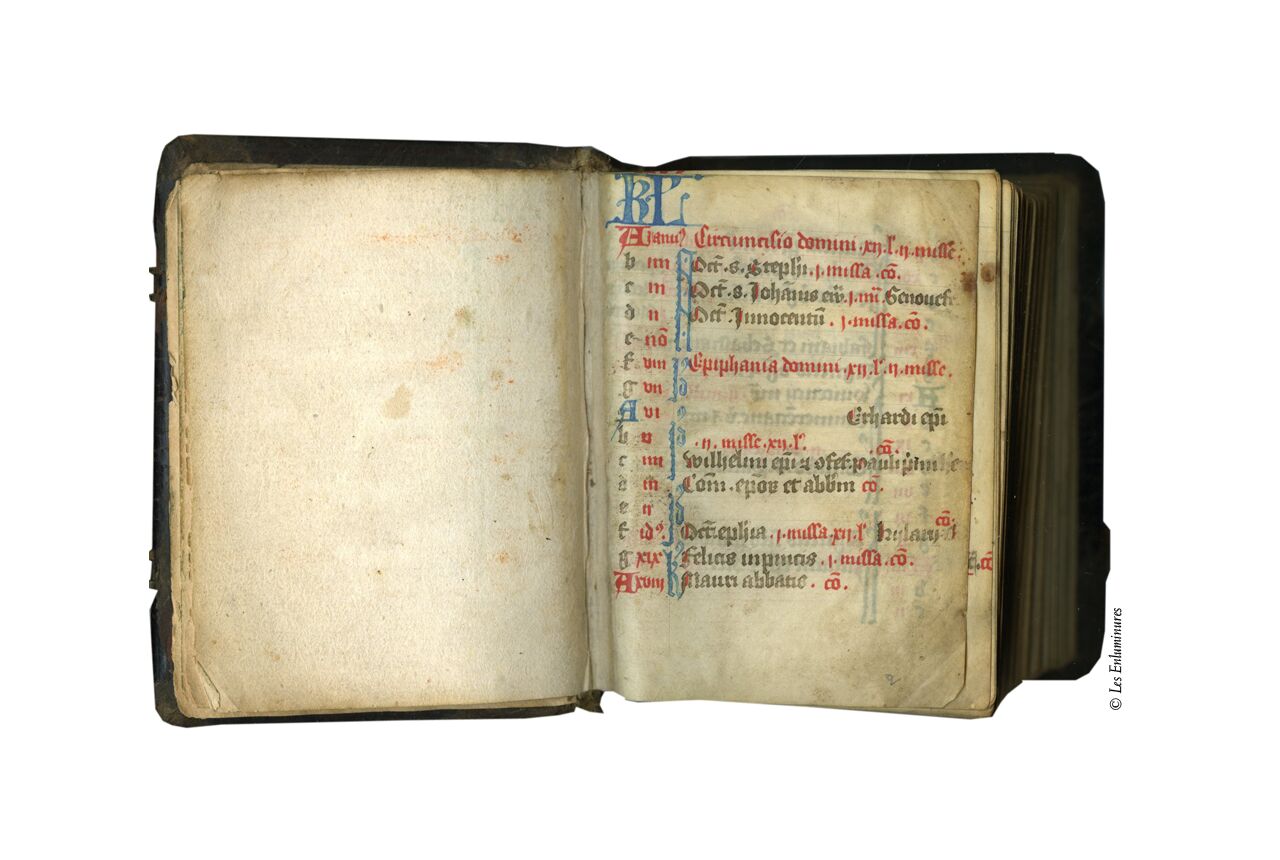 KL
A Ianu⁹ Circumcisio domini .xij.l'.ij.misse.
b iiij Oct̄.s.Stephi.j.missa.cō.
c iij Oct̄.s.Johānis j.m̄.Genouefe
d ij Oct̄.Jnnocentū.j.missa.cō.
e nō
f viij Epiphania domini.xij.l'.ij.misse.
g vij
A vi Erhardi ep̄i
b v .ij.misse.xij.l'.
c iiij Wilhelmi ep̄i cō.
d iij Com̄.ep̄or et abb̄m cō.
e ij
f id⁹ Oct̄.ep̄hia.j.missa.xij.l' hylarij cō.
g xix Felicis in pincis.j.missa.cō.
A xviij Mauri abbatis.cō.
cō
2
© Les Enluminures